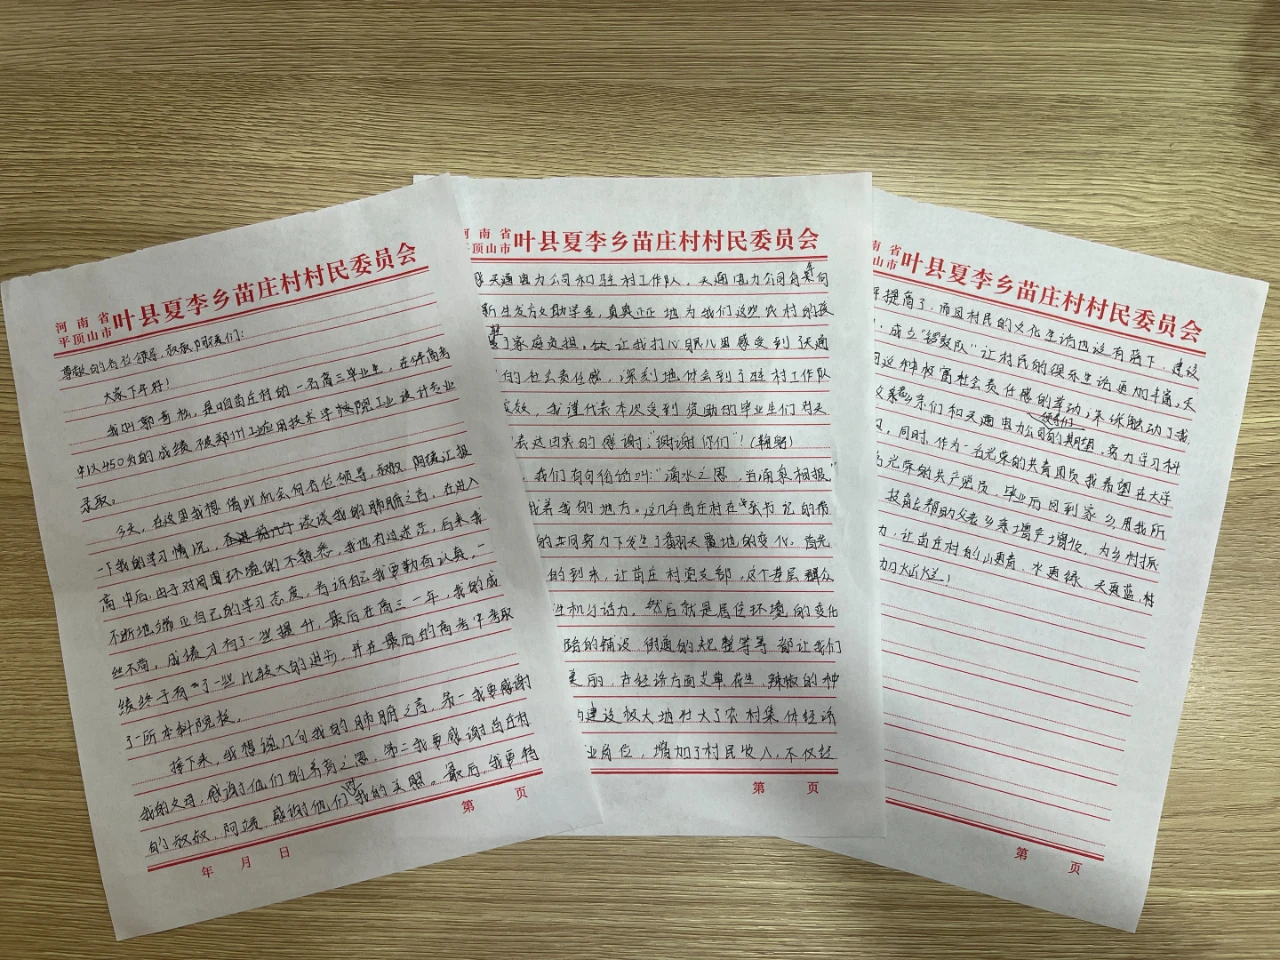 河南省
平顶山市
叶县夏李乡苗庄村村民委员会
尊敬的各位领导,叔叔阿姨们:
大家下午好!
我叫郭奇松,是咱苗庄村的一名高三毕业生,在今年高考
中以450分的成绩被郑州工业应用技术学院工业设计专业
录取。
今天,在这里我想借此机会向各位领导,叔叔,阿姨汇报
一下我的学习情况,谈谈我的肺腑之言,在进入
高中后,由于对周围环境的不熟悉,我也有过迷茫,后来我
不断地端正自己的学习态度,告诉自己我要勤奋认真,一
丝不苟,成绩才有了一些提升,最后在高三一年,我的成
绩终于有了一些比较大的进步,并在最后的高考中考取
了一所本科院校。
接下来,我想说几句我的肺腑之言,第一我要感谢
我的父母,感谢他们的养育之恩,第二我要感谢苗庄村
的叔叔,阿姨,感谢他们对我的关照。最后,我要特
第 页
年 月 日
河南省
平顶山市
叶县夏李乡苗庄村村民委员会
天通电力公司和驻村工作队,天通电力公司每年向
新生发放助学金,真真正正地为我们这些农村的孩
了家庭负担,让我打心眼儿里感受到天通
的社会责任感,深刻地体会到了驻村工作队
我谨代表本次受到资助的毕业生们对天
表达由衷的感谢:“谢谢你们”!(鞠躬)
我们有句俗话叫:“滴水之恩,当涌泉相报”
养我的地方。这几年苗庄村在
的共同努力下发生了翻天覆地的变化。首先
的到来,让苗庄村党支部,这个基层群众
生机与活力,然后就是居住环境的变化
路的铺设,街道的规整等等都让我们
美丽,在经济方面艾草,花生,辣椒的种
的建设极大地壮大了农村集体经济
业岗位,增加了村民收入,不仅经
第 页
南省
顶山市
叶县夏李乡苗庄村村民委员会
平提高了,而且村民的文化生活也没有落下,建设
,成立“锣鼓队”让村民的娱乐生活更加丰富,天
司这种极富社会责任感的举动,深深触动了我,
父老乡亲们和天通电力公司的期望,努力学习科
识,同时,作为一名光荣的共青团员,我希望在大学
名光荣的共产党员,毕业后回到家乡用我所
技能帮助父老乡亲增产增收,为乡村振
力,让苗庄村的山更青,水更绿,天更蓝,村
第 页